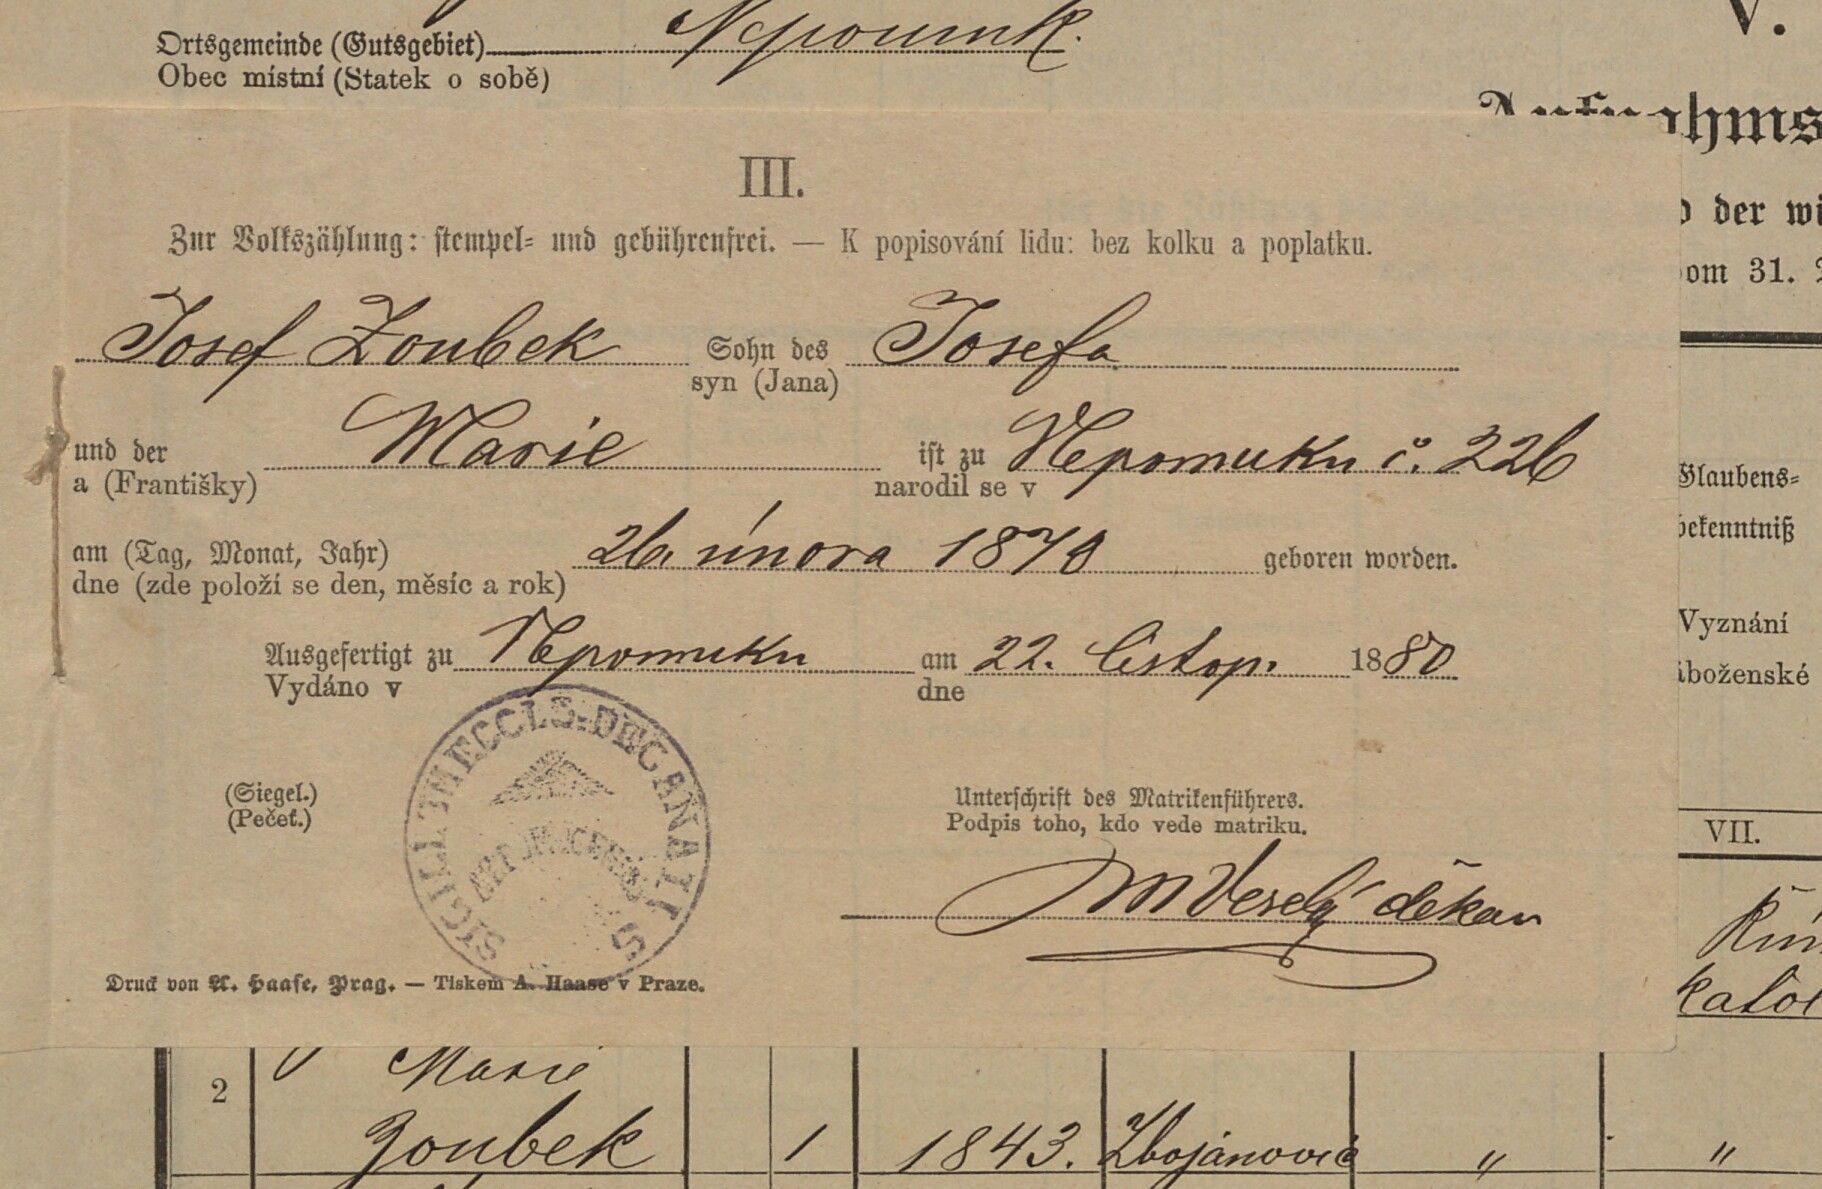 Ortsgemeinde (Gutsgebiet) Nepomuk.
Obec místní (Statek o sobě)
V.
Aufnahms
III.
der wi
Zur Volkszählung: stempel- und gebührenfrei. — K popisování lidu: bez kolku a poplatku.
om 31.
Josef Zoubek Sohn des Josefa
syn (Jana)
und der Marie ist zu Nepomuku č. 226
a (Františky) narodil se v
Glaubens-
bekenntniß
am (Tag, Monat, Jahr) 26. února 1870 geboren worden.
dne (zde položí se den, měsíc a rok)
Vyznání
áboženské
Ausgefertigt zu Nepomuku am 22. listop. 1880
Vydáno v dne
SIGILLUM ECCLS. DECANALIS
(Siegel.)
(Pečeť.)
Unterschrift des Matrikenführers.
Podpis toho, kdo vede matriku.
VII.
Veselý děkan
Řím
katol
Druck von A. Haase, Prag. — Tiskem A. Haase v Praze.
2 Marie
Zoubek 1 1843. Zbojanovic " "